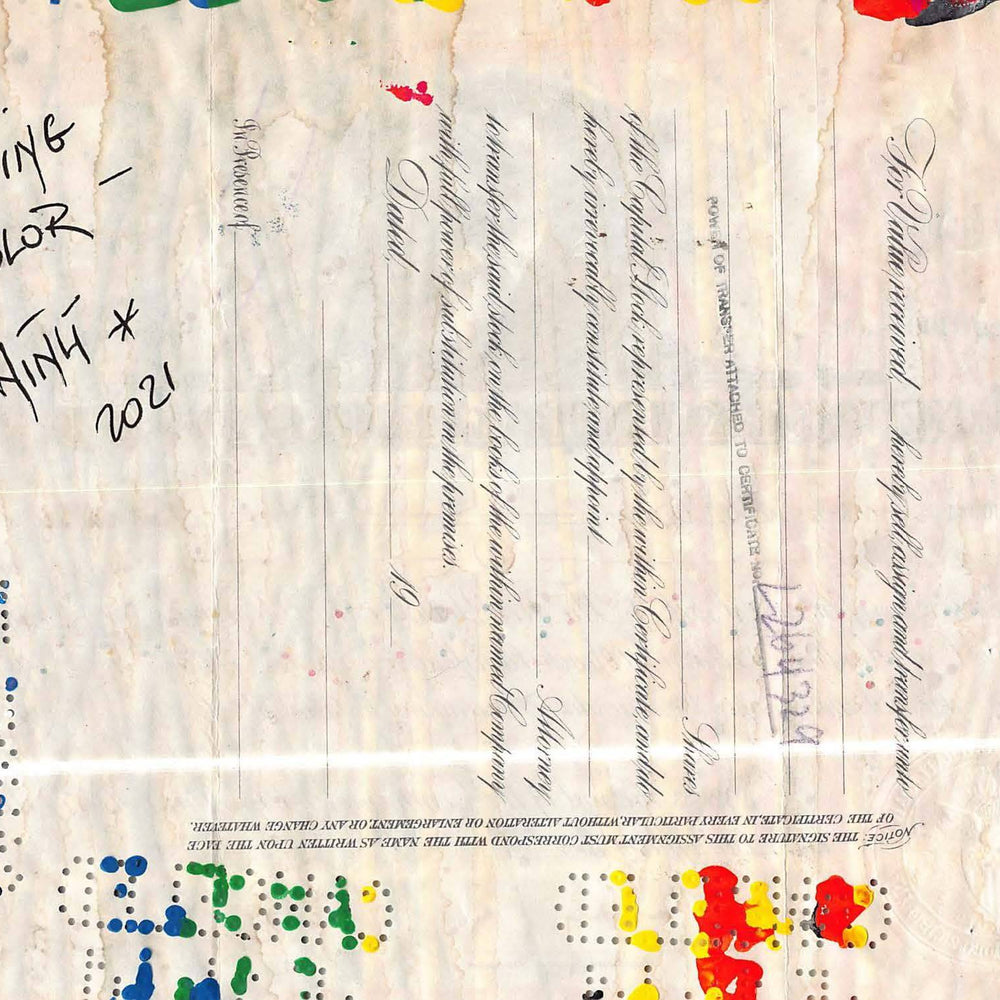 For Value received, hereby sell, assign and transfer unto
POWER OF TRANSFER ATTACHED TO CERTIFICATE NO.
Shares
of the Capital Stock represented by the within Certificate, and do
hereby irrevocably constitute and appoint
Attorney
to transfer the said stock on the books of the within named Company
with full power of substitution in the premises.
Dated, 19
In Presence of
NOTICE: THE SIGNATURE TO THIS ASSIGNMENT MUST CORRESPOND WITH THE NAME AS WRITTEN UPON THE FACE
OF THE CERTIFICATE, IN EVERY PARTICULAR, WITHOUT ALTERATION OR ENLARGEMENT, OR ANY CHANGE WHATEVER.
ING
LOR
2021